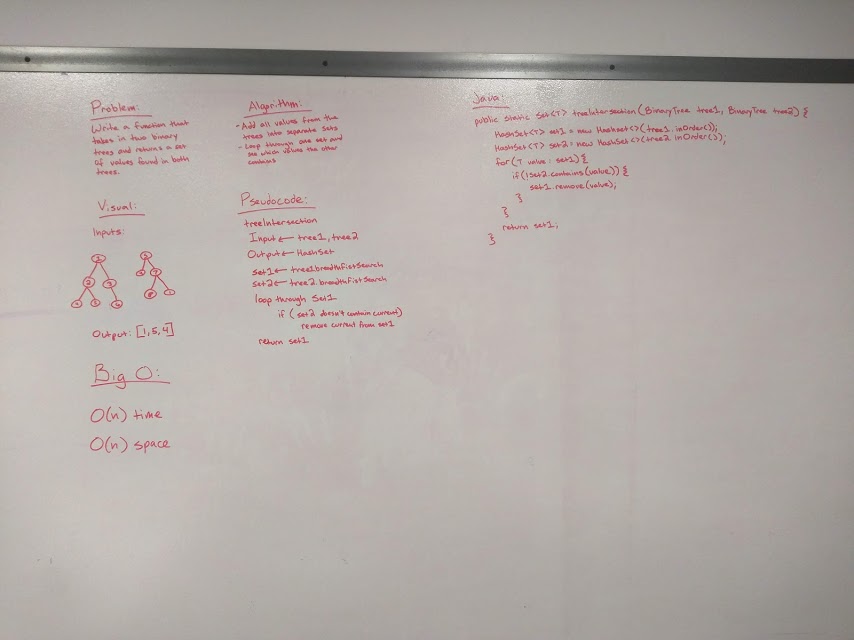 Problem:
Write a function that
takes in two binary
trees and returns a set
of values found in both
trees.
Visual:
Inputs:
1
2 3
4 5 6
Output: [1,5,4]
Big O:
O(n) time
O(n) space
Algorithm:
- Add all values from the
trees into separate sets
- Loop through one set and
see which values the other
contains
Pseudocode:
treeIntersection
Input ← tree1, tree2
Output ← HashSet
set1 ← tree1.breadthFistSearch
set2 ← tree2.breadthFistSearch
loop through Set1
if (set2 doesn't contain current)
remove current from set1
return set1
Java:
public static Set<T> treeIntersection(BinaryTree tree1, BinaryTree tree2) {
HashSet<T> set1 = new HashSet<>(tree1.inOrder());
HashSet<T> set2 = new HashSet<>(tree2.inOrder());
for(T value : set1){
if(!set2.contains(value)) {
set1.remove(value);
}
}
return set1;
}